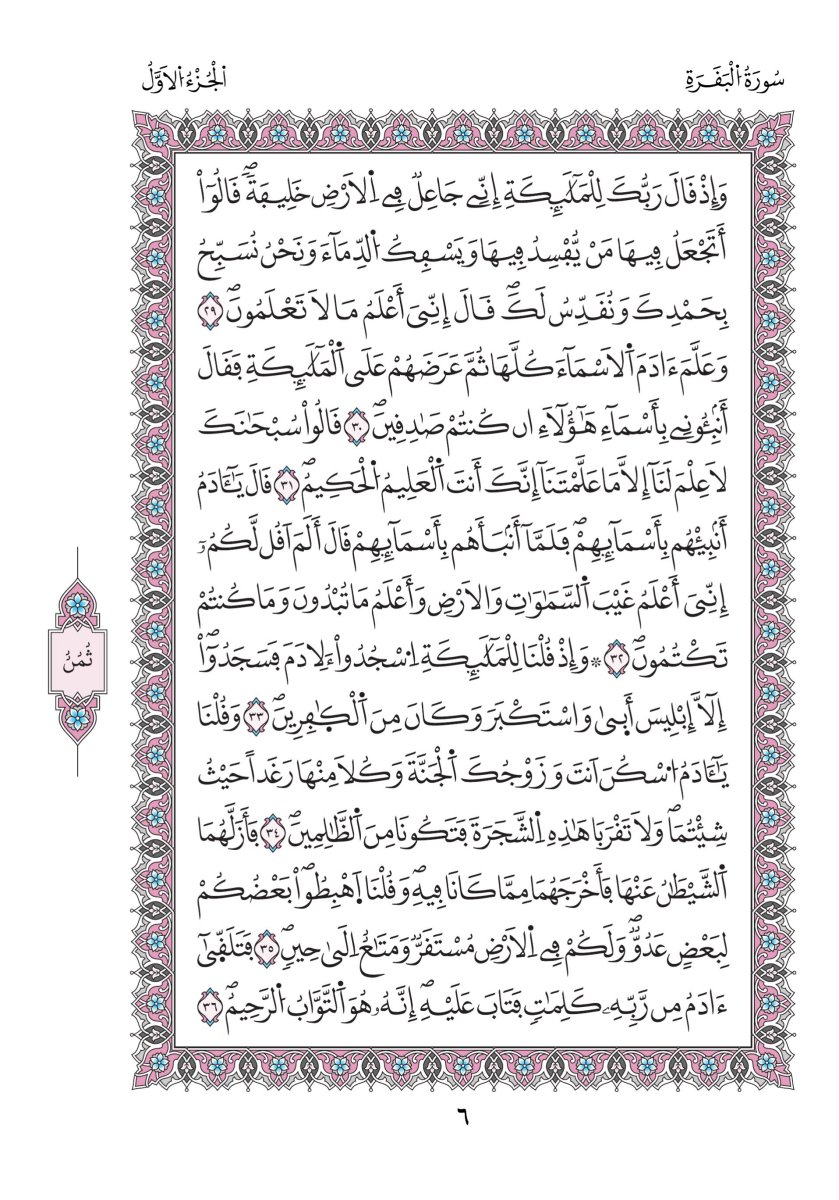 سُورَةُ اُ۬لْبَقَرَةِ
اَ۬لْجُزْءُ اُ۬لَاوَّلُ
وَإِذْ قَالَ رَبُّكَ لِلْمَلَٰٓئِكَةِ إِنِّے جَاعِلٞ فِے اِ۬لَارْضِ خَلِيفَةٗۖ قَالُوٓاْ
أَتَجْعَلُ فِيهَا مَنْ يُّفْسِدُ فِيهَا وَيَسْفِكُ اُ۬لدِّمَآءَ وَنَحْنُ نُسَبِّحُ
بِحَمْدِكَ وَنُقَدِّسُ لَكَۖ قَالَ إِنِّيَ أَعْلَمُ مَا لَا تَعْلَمُونَۖ ٢٩
وَعَلَّمَ ءَادَمَ اَ۬لَاسْمَآءَ كُلَّهَا ثُمَّ عَرَضَهُمْ عَلَي اَ۬لْمَلَٰٓئِكَةِ فَقَالَ
أَنۢبِـُٔونِے بِأَسْمَآءِ هَٰٓؤُلَآءِ ان كُنتُمْ صَٰدِقِينَۖ ٣٠ قَالُواْ سُبْحَٰنَكَ
لَا عِلْمَ لَنَآ إِلَّا مَا عَلَّمْتَنَآ إِنَّكَ أَنتَ اَ۬لْعَلِيمُ اُ۬لْحَكِيمُۖ ٣١ قَالَ يَٰٓـَٔادَمُ
أَنۢبِئْهُم بِأَسْمَآئِهِمْۖ فَلَمَّآ أَنۢبَأَهُم بِأَسْمَآئِهِمْ قَالَ أَلَمَ اَقُل لَّكُمُۥٓ
إِنِّيَ أَعْلَمُ غَيْبَ اَ۬لسَّمَٰوَٰتِ وَالَارْضِ وَأَعْلَمُ مَا تُبْدُونَ وَمَا كُنتُمْ
تَكْتُمُونَۖ ٣٢ ۞وَإِذْ قُلْنَا لِلْمَلَٰٓئِكَةِ اِ۟سْجُدُواْ ءلِادَمَ فَسَجَدُوٓاْۖ
ثُمُنٌ
إِلَّآ إِبْلِيسَ أَب۪ىٰ وَاسْتَكْبَرَ وَكَانَ مِنَ اَ۬لْكٰ۪فِرِينَۖ ٣٣ وَقُلْنَا
يَٰٓـَٔادَمُ اُ۟سْكُنَ اَنتَ وَزَوْجُكَ اَ۬لْجَنَّةَ وَكُلَا مِنْهَا رَغَداً حَيْثُ
شِئْتُمَاۖ وَلَا تَقْرَبَا هَٰذِهِ اِ۬لشَّجَرَةَ فَتَكُونَا مِنَ اَ۬لظَّٰلِمِينَۖ ٣٤ فَأَزَلَّهُمَا
اَ۬لشَّيْطَٰنُ عَنْهَا فَأَخْرَجَهُمَا مِمَّا كَانَا فِيهِۖ وَقُلْنَا اَ۪هْبِطُواْۖ بَعْضُكُمْ
لِبَعْضٍ عَدُوّٞۖ وَلَكُمْ فِے اِ۬لَارْضِ مُسْتَقَرّٞ وَمَتَٰعٌ إِلَىٰ حِينٖۖ ٣٥ فَتَلَقّ۪ىٰٓ
ءَادَمُ مِن رَّبِّهِۦ كَلِمَٰتٖ فَتَابَ عَلَيْهِۖ إِنَّهُۥ هُوَ اَ۬لتَّوَّابُ اُ۬لرَّحِيمُۖ ٣٦
٦